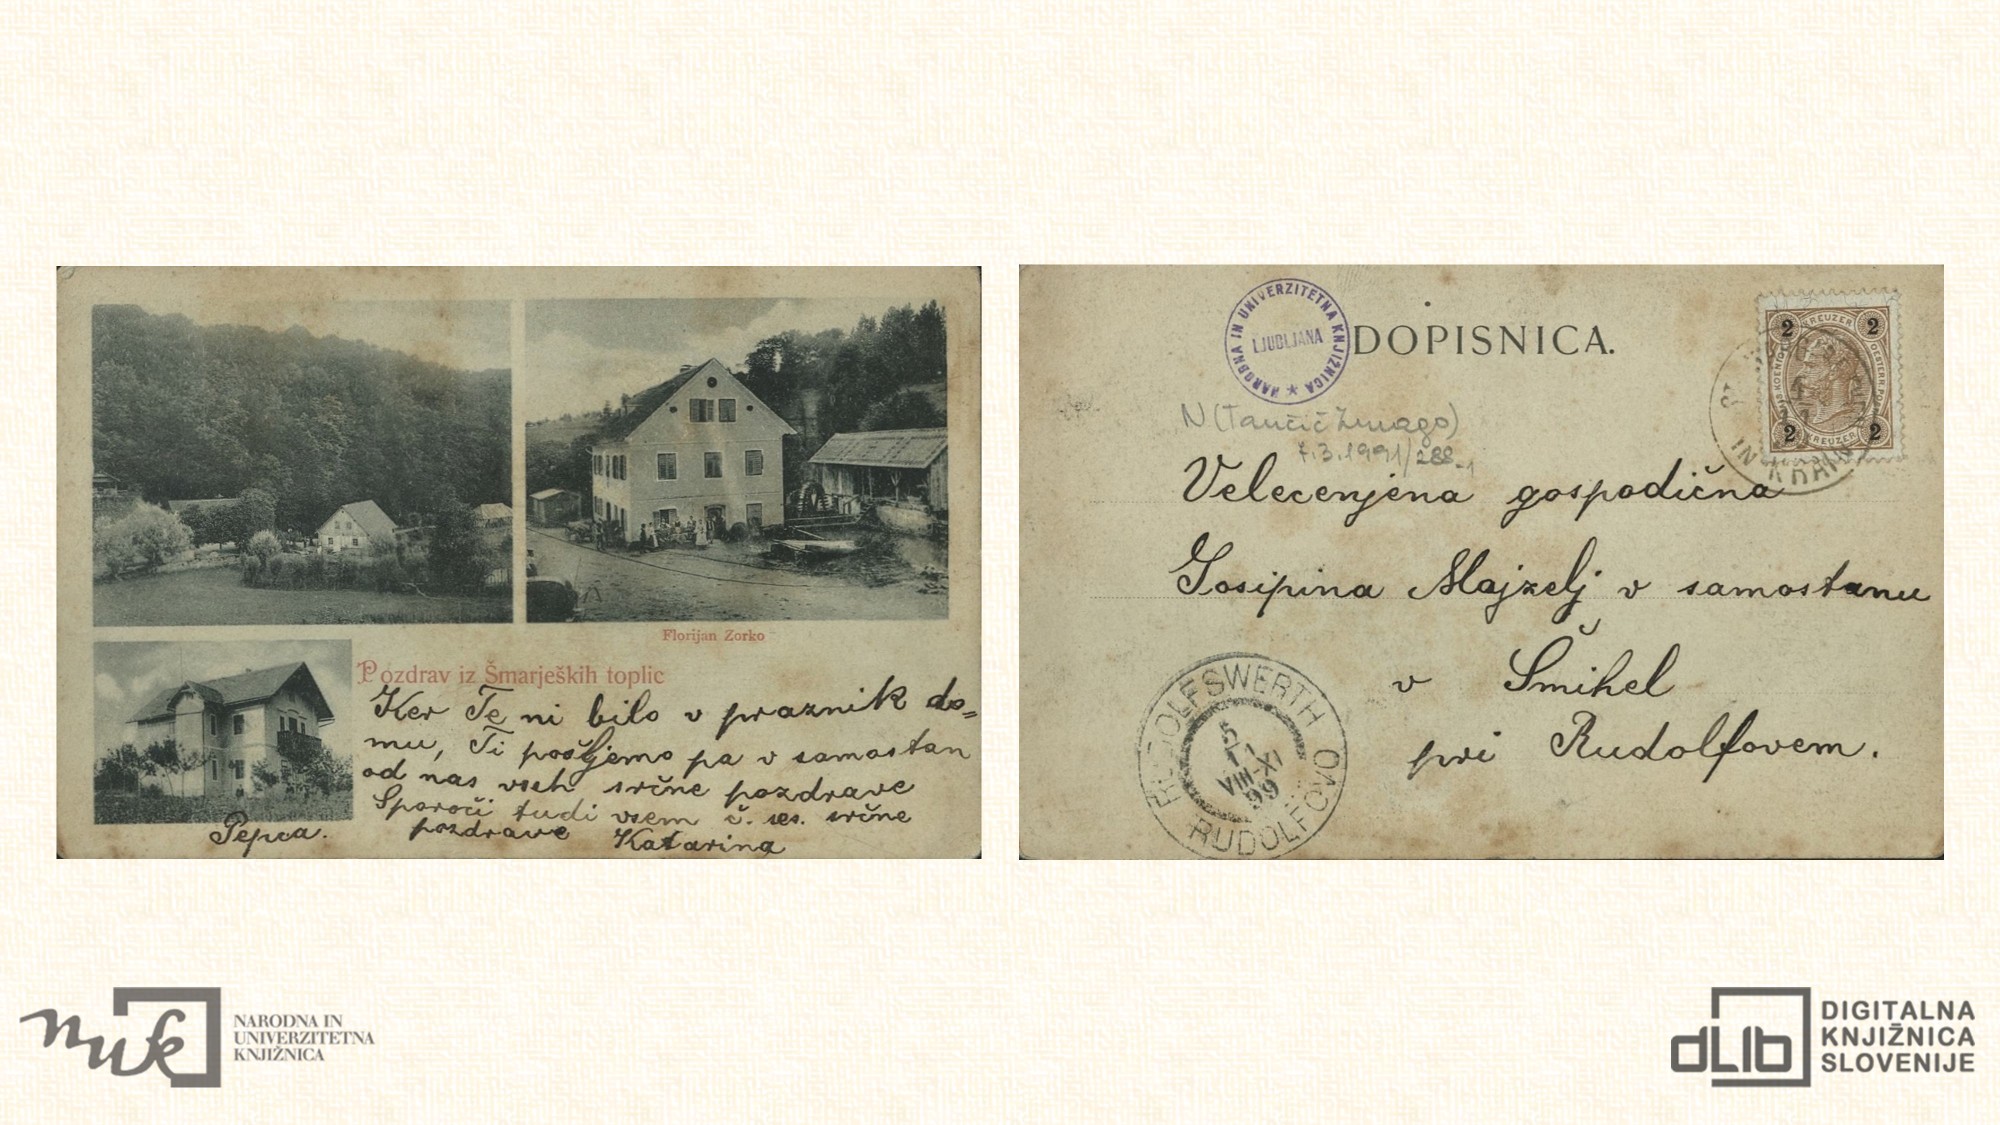 Florijan Zorko
Pozdrav iz Šmarjeških toplic
Ker Te ni bilo v praznik do=
mu, Ti pošljemo pa v samostan
od nas vseh srčne pozdrave
Sporoči tudi vsem č. ses. srčne
pozdrave Katarina
Pepca.
NARODNA IN UNIVERZITETNA KNJIŽNICA
LJUBLJANA
DOPISNICA.
2 KREUZER 2
2 KREUZER 2
IN KRAIN
N (Tančič Zmago)
7.3.1991/288-1
Velecenjena gospodična
Josipina Majzelj v samostanu
v Šmihel
pri Rudolfovem.
RUDOLFSWERTH
5
11
VIII-XI
99
RUDOLFOVO
nuk
NARODNA IN
UNIVERZITETNA
KNJIŽNICA
dLib
DIGITALNA
KNJIŽNICA
SLOVENIJE